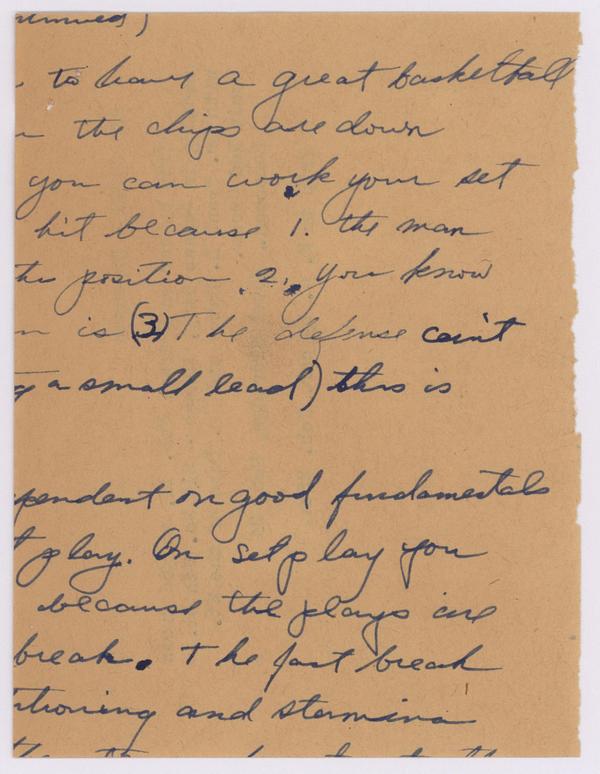 to have a great basketball
the chips are down
you can work your set
hit because 1. the man
position. 2. you know
is (3) The defense can't
a small lead) this is
pendent on good fundamentals
play. On set play you
because the plays are
break. The fast break
tioning and stamina